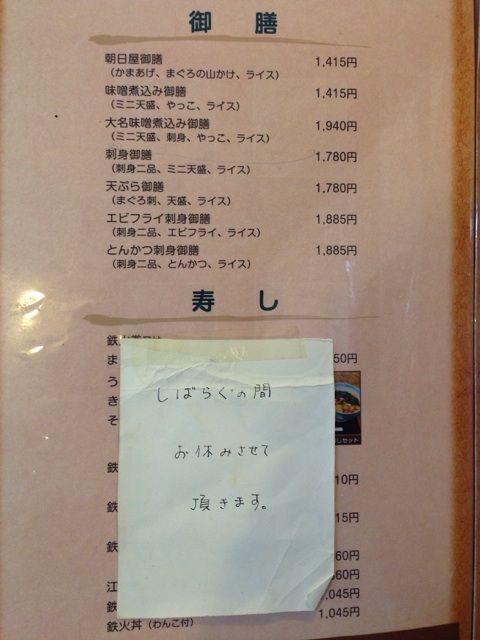 御膳
朝日屋御膳 1,415円
(かまあげ、まぐろの山かけ、ライス)
味噌煮込み御膳 1,415円
(ミニ天盛、やっこ、ライス)
大名味噌煮込み御膳 1,940円
(ミニ天盛、刺身、やっこ、ライス)
刺身御膳 1,780円
(刺身二品、ミニ天盛、ライス)
天ぷら御膳 1,780円
(まぐろ刺、天盛、ライス)
エビフライ刺身御膳 1,885円
(刺身二品、エビフライ、ライス)
とんかつ刺身御膳 1,885円
(刺身二品、とんかつ、ライス)
寿し
しばらくの間
お休みさせて
頂きます。
鉄
ま 50円
う
き
そ
セット
鉄 10円
鉄 15円
鉄 60円
江 60円
鉄 1,045円
鉄火丼(わんこ付) 1,045円